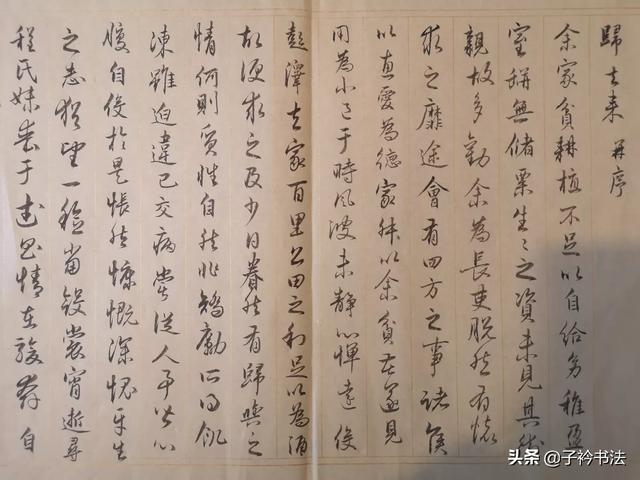 歸去来 并序
余家貧耕植不足以自給幼稚盈
室缾無儲粟生〻之資未見其術
親故多勸余為長吏脱然有懷
求之靡途會有四方之事諸侯
以惠愛為德家叔以余貧苦遂見
用為小邑于時風波未静心憚遠役
彭澤去家百里公田之利足以為酒
故便求之及少日眷然有歸與之
情何則質性自然非矯勵所得飢
凍雖迫違己交病嘗從人事皆口
腹自役於是悵然慷慨深愧平生
之志猶望一稔當斂裳宵逝尋
程氏妹喪于武昌情在駿奔自
头条 @子衿书法